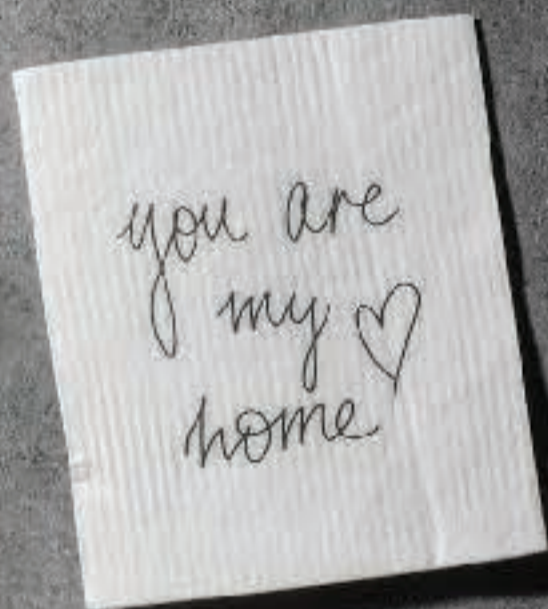 you are
my ♡
home